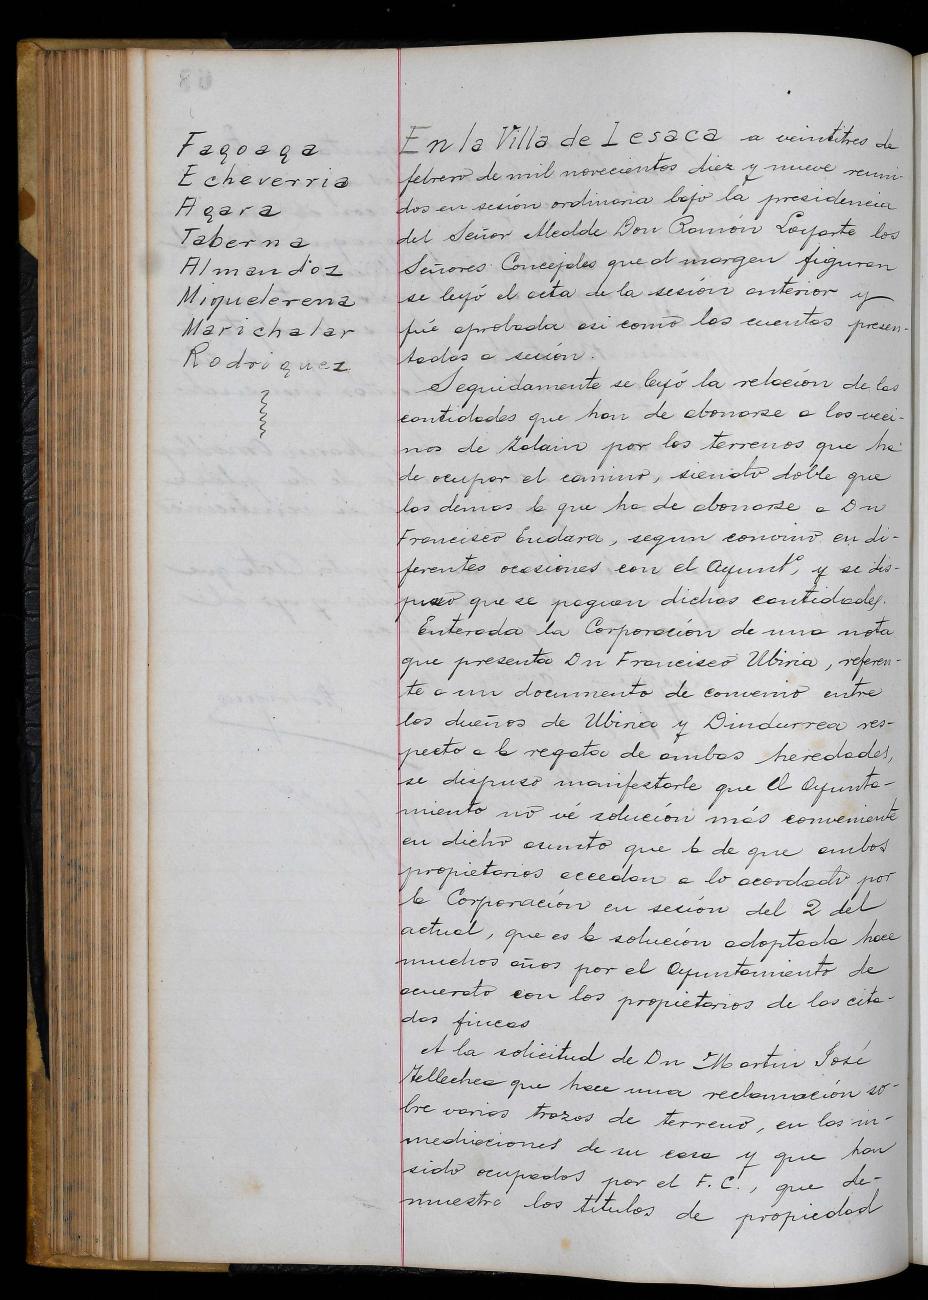 Fagoaga
Echeverria
Agara
Taberna
Almandoz
Miquelerena
Marichalar
Rodriguez
En la Villa de Lesaca a veintitres de
febrero de mil novecientos diez y nueve reuni-
dos en sesión ordinaria bajo la presidencia
del Señor Alcalde Don Ramón Loyarte los
Señores Concejales que al margen figuran
se leyó el acta de la sesión anterior y
fué aprobada asi como las cuentas presen-
tadas a sesión.
Seguidamente se leyó la relación de las
cantidades que han de abonarse a los veci-
nos de Zalain por los terrenos que ha
de ocupar el camino, siendo doble que
los demas la que ha de abonarse a Dn
Francisco Endara, segun convino en di-
ferentes ocasiones con el Ayuntº, y se dis-
puso que se paguen dichas cantidades.
Enterada la Corporación de una nota
que presenta Dn Francisco Ubiria, referen-
te a un documento de convenio entre
los dueños de Ubiria y Dindurrea res-
pecto a la regata de ambas heredades,
se dispuso manifestarle que el Ayunta-
miento no vé solución más conveniente
en dicho asunto que la de que ambos
propietarios accedan a lo acordado por
la Corporación en sesión del 2 del
actual, que es la solución adoptada hace
muchos años por el Ayuntamiento de
acuerdo con los propietarios de las cita-
das fincas
A la solicitud de Dn Martin José
Tellechea que hace una reclamación so-
bre varios trozos de terreno, en las in-
mediaciones de su casa y que han
sido ocupados por el F.C., que de-
muestra los titulos de propiedad